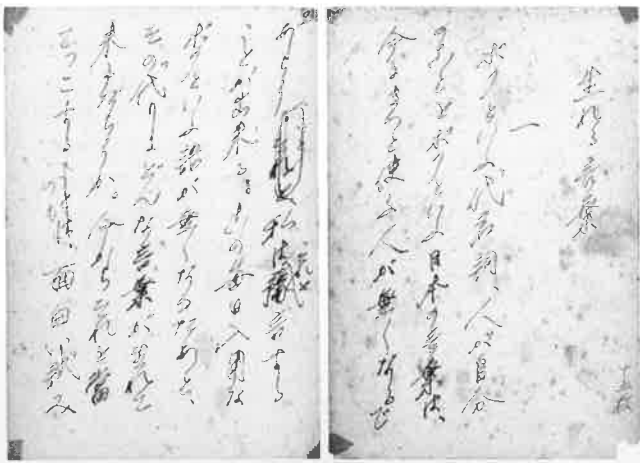 生れる言葉
一
ボクといふ代名詞、人が自分
のことをボクといふ日本の言葉は、
今にきつと使ふ人が無くなるだ
らう 私は 言する
ことが出来る。この毎日入用な
ボクといふ語が無くなつたあと、
その代りにどんな言葉が生れて
来るだらうか。今からこれを当
てつこするのは、面白い試み